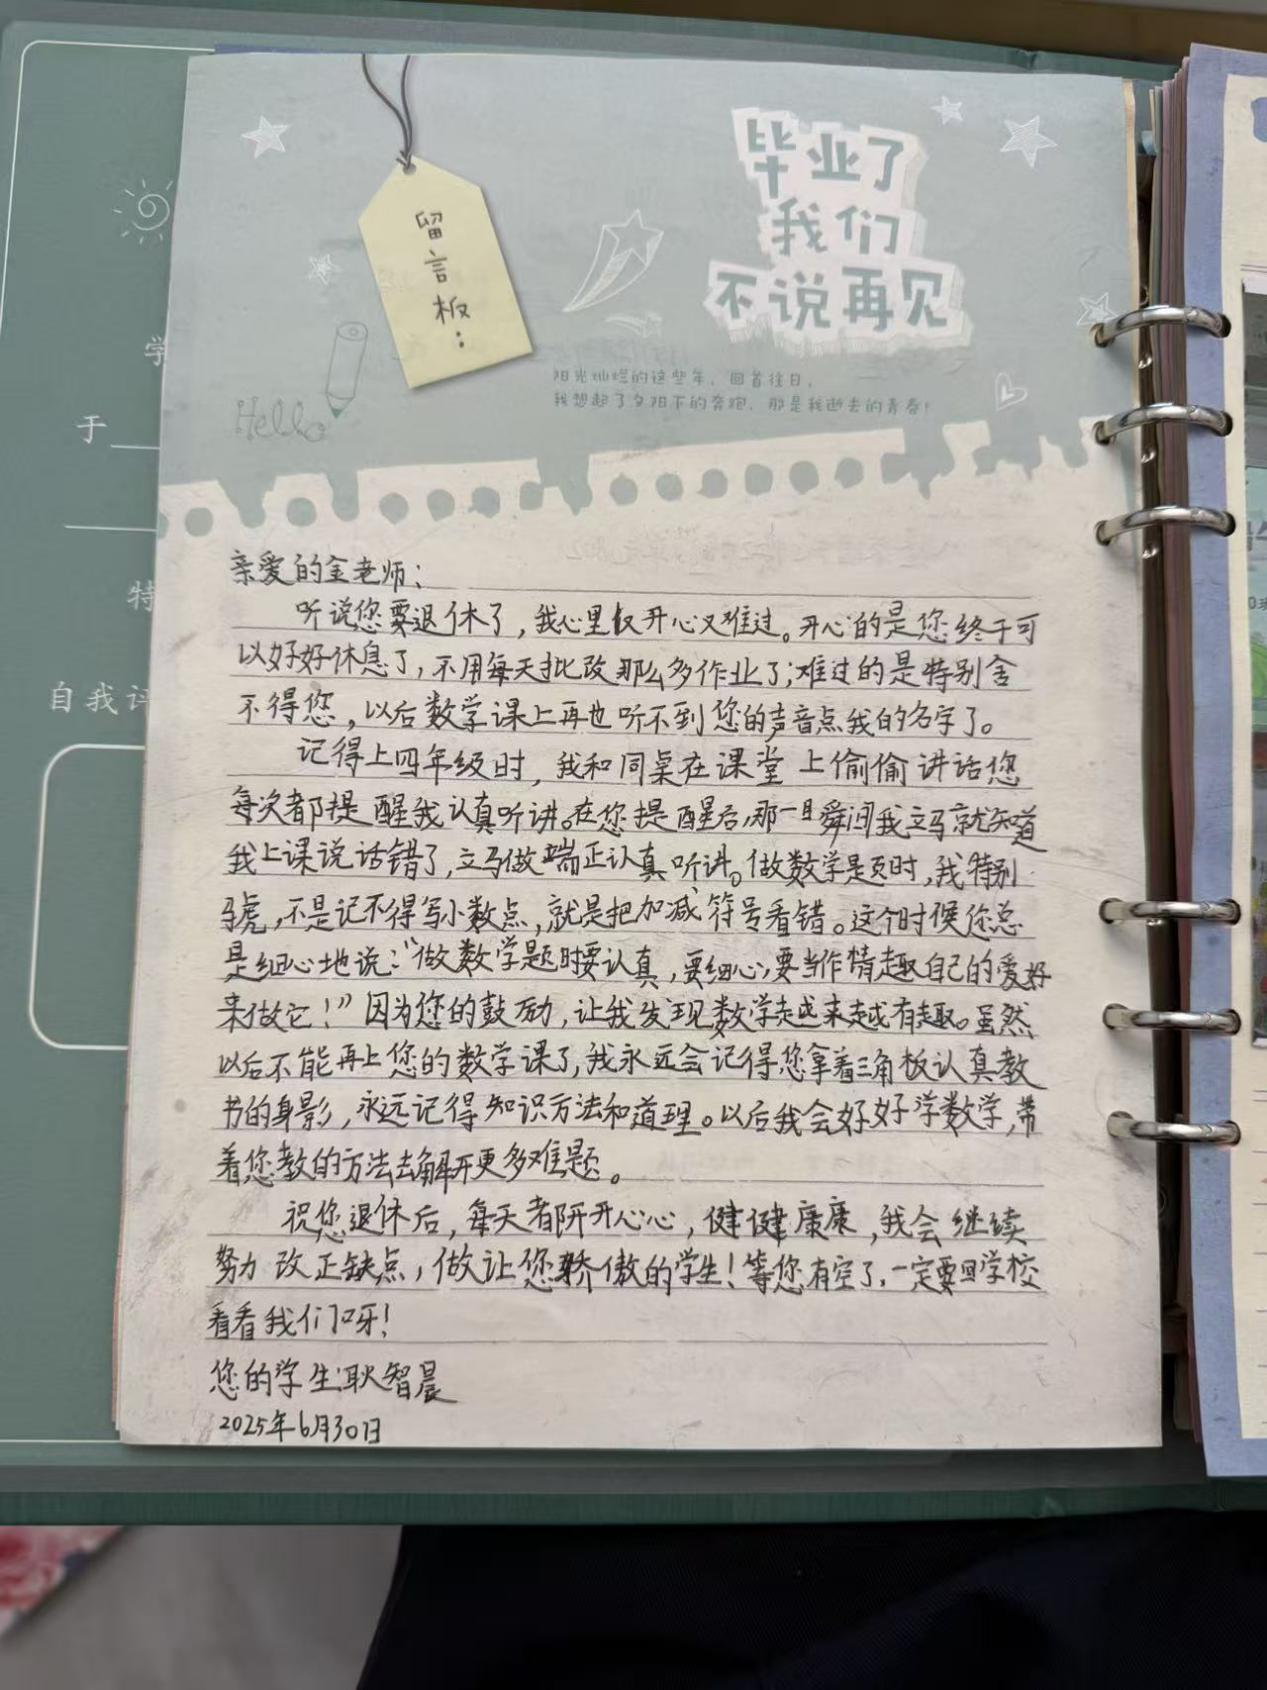 毕业了
我们
不说再见
留言板：
阳光灿烂的这些年，回首往日，
我想起了夕阳下的奔跑，那是我逝去的青春！
Hello
学
于
特
自我评
亲爱的金老师：
听说您要退休了，我心里又开心又难过。开心的是您终于可
以好好休息了，不用每天批改那么多作业了；难过的是特别舍
不得您，以后数学课上再也听不到您的声音点我的名字了。
记得上四年级时，我和同桌在课堂上偷偷讲话您
每次都提醒我认真听讲。在您提醒后，那一瞬间我立马就知道
我上课说话错了，立马做端正认真听讲。做数学题时，我特别
虎，不是记不得写小数点，就是把加减符号看错。这个时候您总
是细心地说：“做数学题时要认真，要细心，要当作情趣自己的爱好
来做它！”因为您的鼓励，让我发现数学越来越有趣。虽然
以后不能再上您的数学课了，我永远会记得您拿着三角板认真教
书的身影，永远记得知识方法和道理。以后我会好好学数学，带
着您教的方法去解开更多难题。
祝您退休后，每天都开开心心，健健康康，我会继续
努力改正缺点，做让您骄傲的学生！等您有空了，一定要回学校
看看我们呀！
您的学生：耿智晨
2025年6月30日